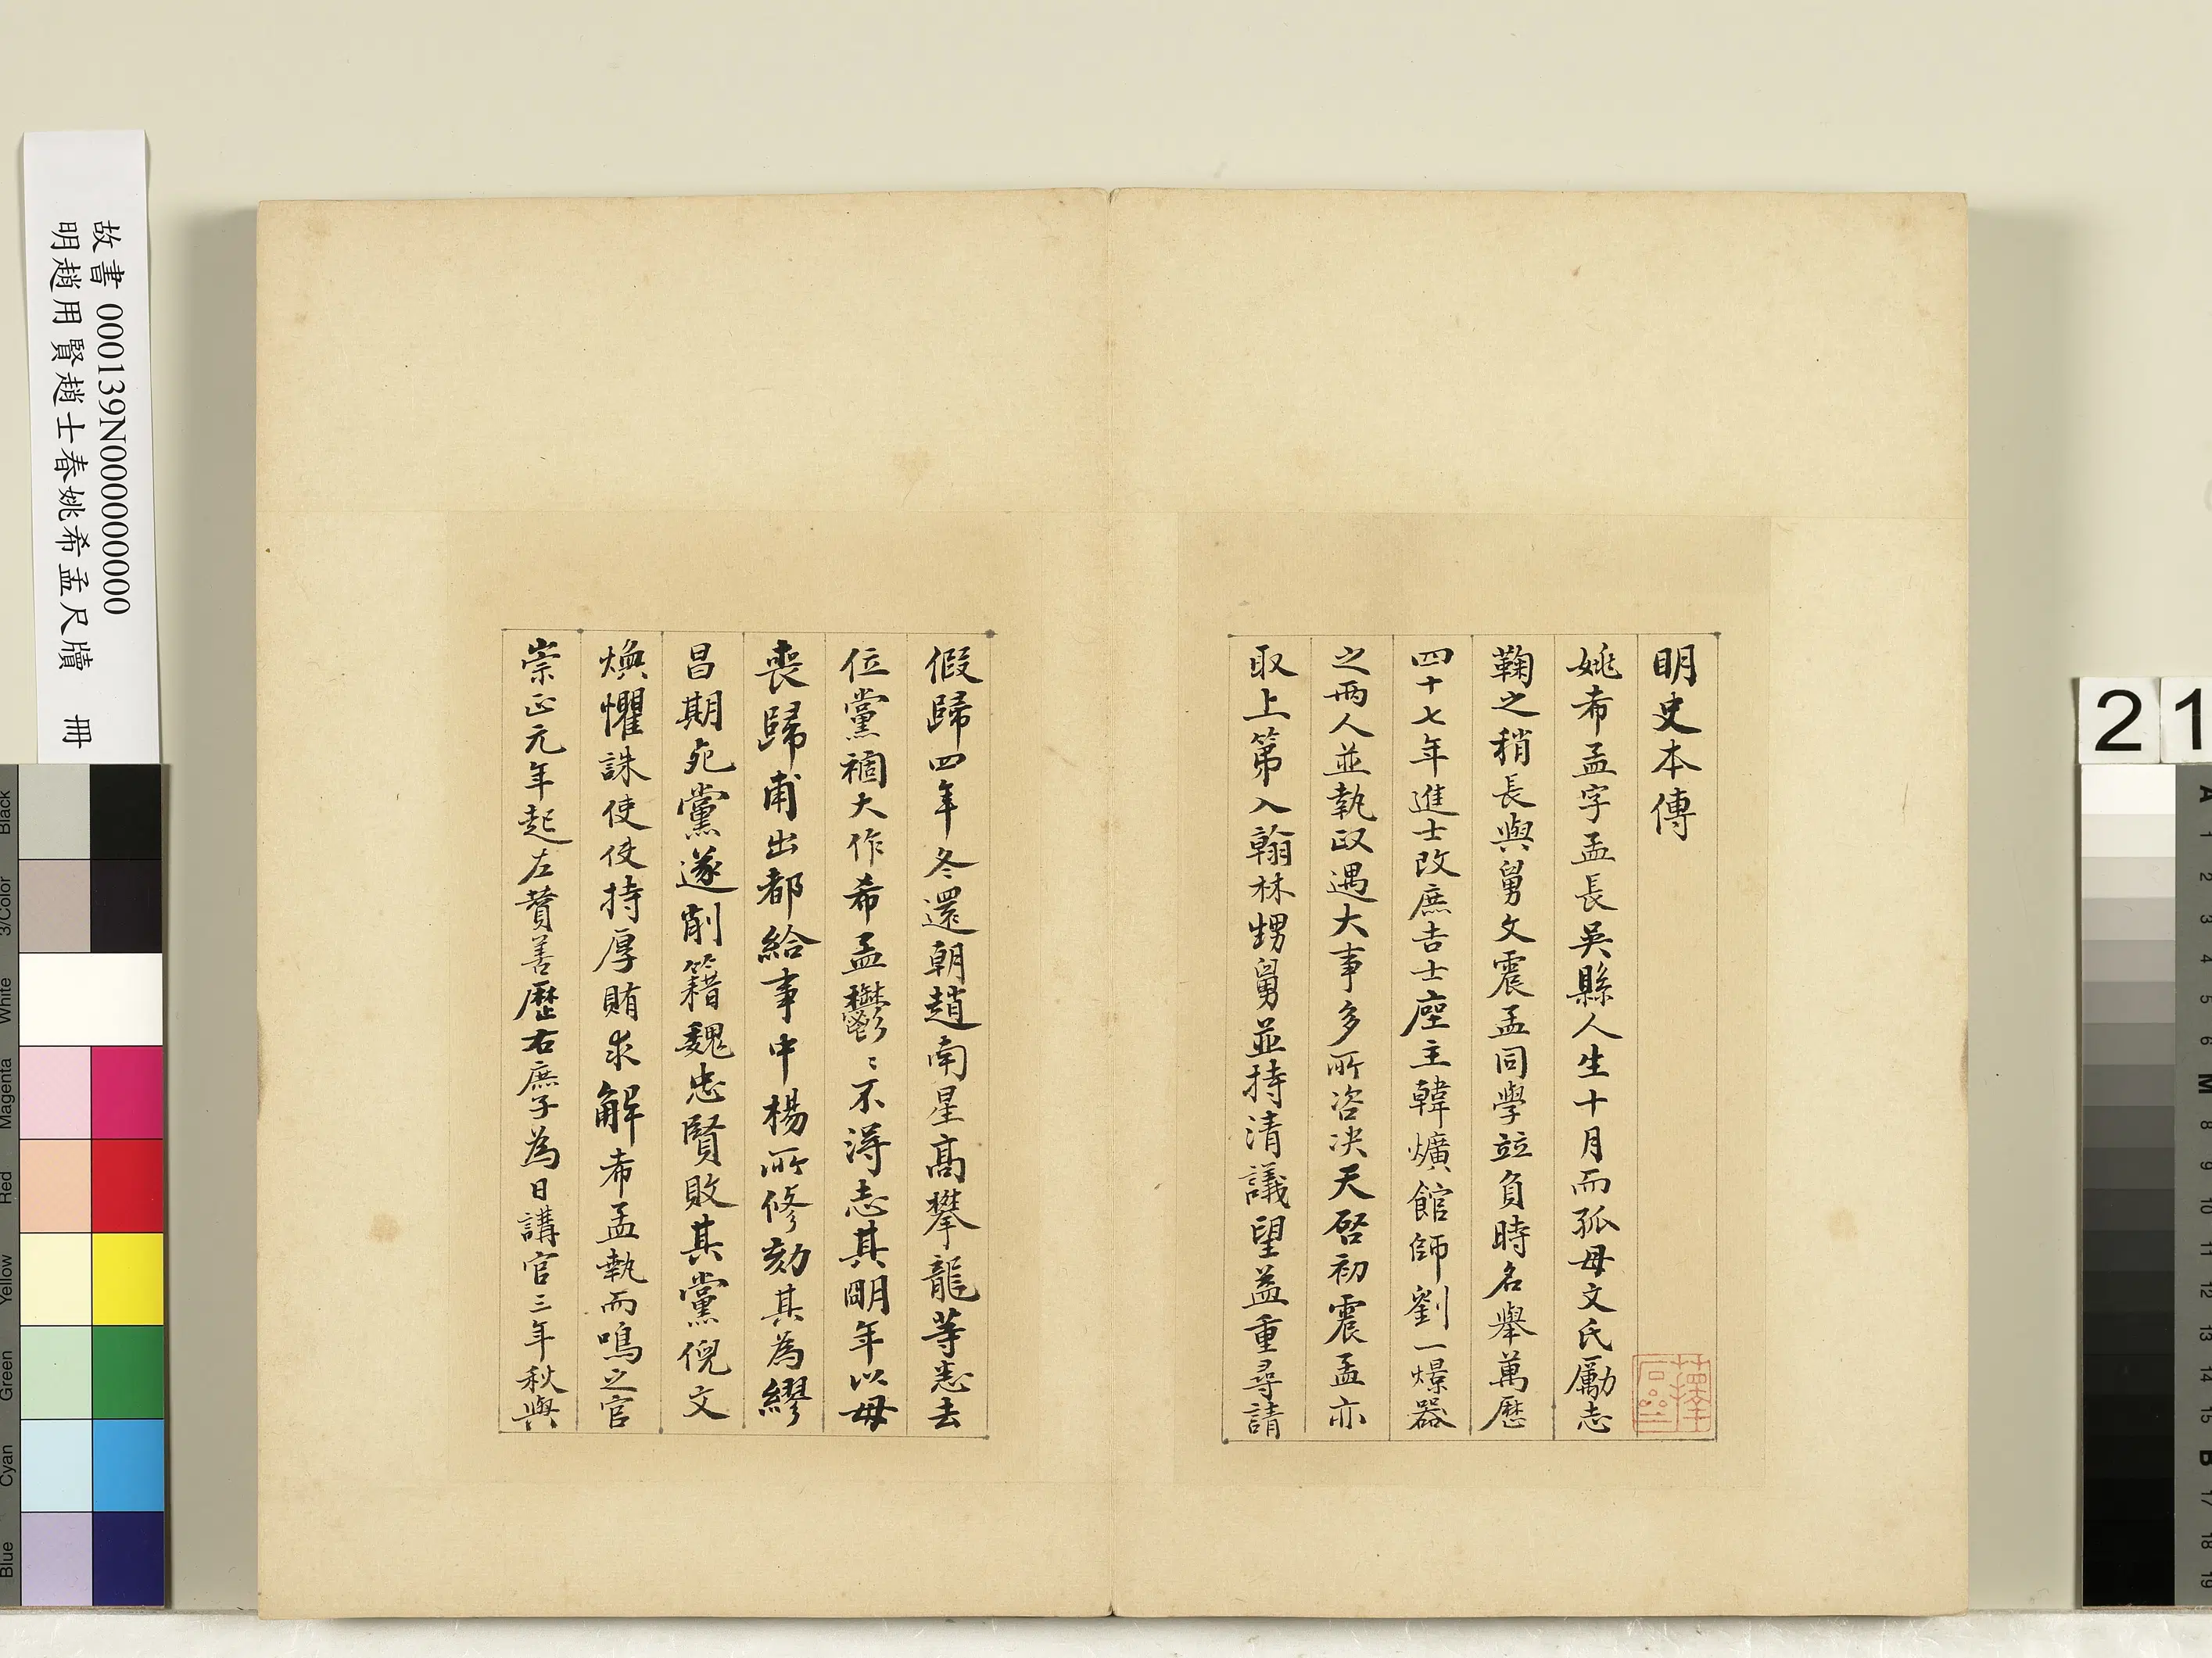 明史本傳
姚希孟字孟長吳縣人生十月而孤母文氏勵志
鞠之稍長與舅文震孟同學竝負時名舉萬歷
四十七年進士改庶吉士座主韓爌館師劉一燝器
之兩人並執政遇大事多所咨決天啓初震孟亦
取上第入翰林甥舅並持清議望益重尋請
假歸四年冬還朝趙南星高攀龍等悉去
位黨禍大作希孟鬱〻不得志其明年以母
喪歸甫出都給事中楊所修劾其為繆
昌期死黨遂削籍魏忠賢敗其黨倪文
煥懼誅使使持厚賄求解希孟執而鳴之官
崇正元年起左贊善歷右庶子為日講官三年秋與
故書 000139N000000000
明趙用賢趙士春姚希孟尺牘 冊
21
Black
3/Color
White
Magenta
Red
Yellow
Green
Cyan
Blue
A
1
2
3
4
5
6
M
8
9
10
11
12
13
14
15
B
17
18
19